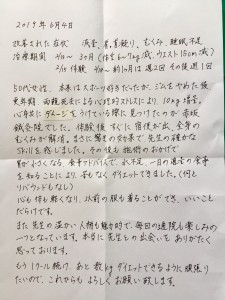 2019年 6月4日
改善された症状 減量、首・肩凝り、むくみ、睡眠不足
治療期間 2/10〜 3ヶ月(体重6〜7kg減、ウエスト15cm減)
2/10体験 約1ヶ月は週2回 その後週1回
50代女性。 本来はスポーツ好きでしたが、ひざを
更年期、両親死去による心理的ストレスにより、10kg増量。
心身共にダメージをうけている際に見つけたのが赤坂
鍼灸院でした。体験後すぐに宿便が出、全身の
むくみが解消。まさに驚きの効果で、先生の確かな
Skillを感じました。その後も施術のおかげで
胃が小さくなる、食事アドバイスで、水不足、一日の適正の食事
を知ることにより、苦もなくダイエットできました。(何と
リバウンドもなし)
心も体も軽くなり、以前の服も着ることができ、いいこと
だらけです。
また先生の温かい人柄も魅力的で、毎回の通院も楽しみの
一つとなっています。本当に先生との出会いをありがたく
思っております。
もう1クール続け、あと数kgダイエットできるように頑張り
たいので、これからもよろしくお願い致します。